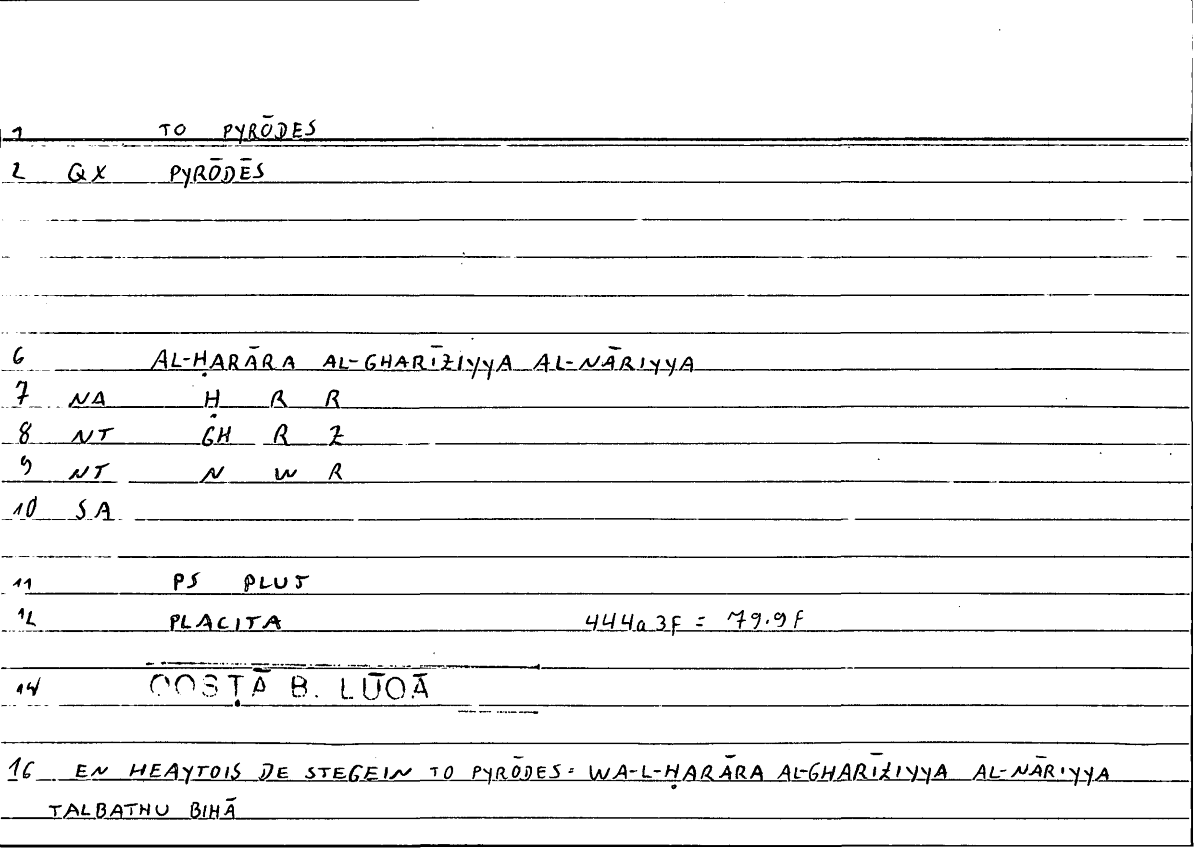 1 TO PYRŌDES
2 QX PYRŌDĒS
6 AL-ḤARĀRA AL-GHARĪZIYYA AL-NĀRIYYA
7 NA Ḥ R R
8 NT GH R Z
9 NT N W R
10 SA
11 PS PLUT
12 PLACITA 444a3F = 79.9F
14 QOSṬĀ B. LŪQĀ
16 EN HEAYTOIS DE STEGEIN TO PYRŌDES = WA-L-ḤARĀRA AL-GHARĪZIYYA AL-NĀRIYYA
TALBATHU BIHĀ